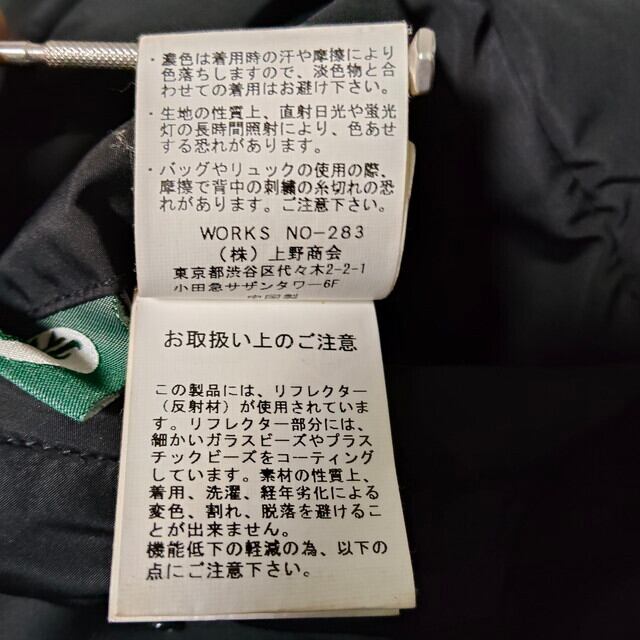 ・濃色は着用時の汗や摩擦により
色落ちしますので、淡色物と合
わせての着用はお避け下さい。
・生地の性質上、直射日光や蛍光
灯の長時間照射により、色あせ
する恐れがあります。
・バッグやリュックの使用の際、
摩擦で背中の刺繍の糸切れの恐
れがあります。ご注意下さい。
WORKS NO-283
(株)上野商会
東京都渋谷区代々木2-2-1
小田急サザンタワー6F
中国製
お取扱い上のご注意
この製品には、リフレクター
(反射材)が使用されていま
す。リフレクター部分には、
細かいガラスビーズやプラス
チックビーズをコーティング
しています。素材の性質上、
着用、洗濯、経年劣化による
変色、割れ、脱落を避けるこ
とが出来ません。
機能低下の軽減の為、以下の
点にご注意ください。